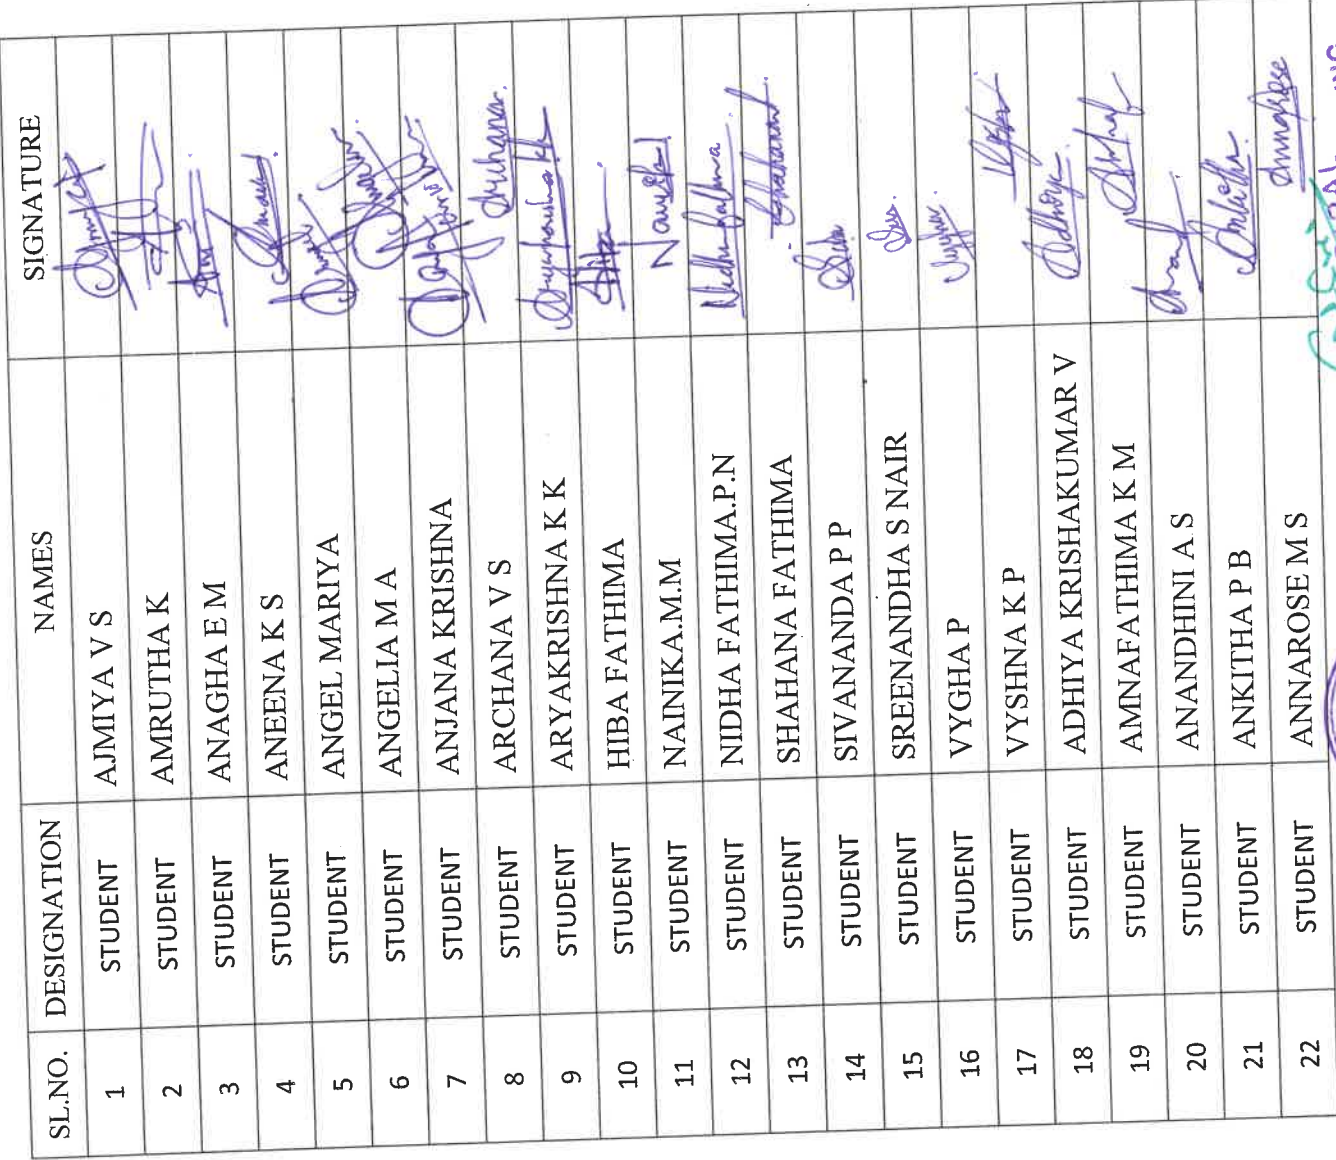 SL.NO. DESIGNATION NAMES SIGNATURE
1 STUDENT AJMIYA V S
2 STUDENT AMRUTHA K
3 STUDENT ANAGHA E M
4 STUDENT ANEENA K S
5 STUDENT ANGEL MARIYA
6 STUDENT ANGELIA M A
7 STUDENT ANJANA KRISHNA
8 STUDENT ARCHANA V S
9 STUDENT ARYAKRISHNA K K
10 STUDENT HIBA FATHIMA
11 STUDENT NAINIKA.M.M
12 STUDENT NIDHA FATHIMA.P.N Nidhafathima
13 STUDENT SHAHANA FATHIMA
14 STUDENT SIVANANDA P P
15 STUDENT SREENANDHA S NAIR
16 STUDENT VYGHA P
17 STUDENT VYSHNA K P
18 STUDENT ADHIYA KRISHAKUMAR V
19 STUDENT AMNAFATHIMA K M
20 STUDENT ANANDHINI A S
21 STUDENT ANKITHA P B
22 STUDENT ANNAROSE M S Annarose